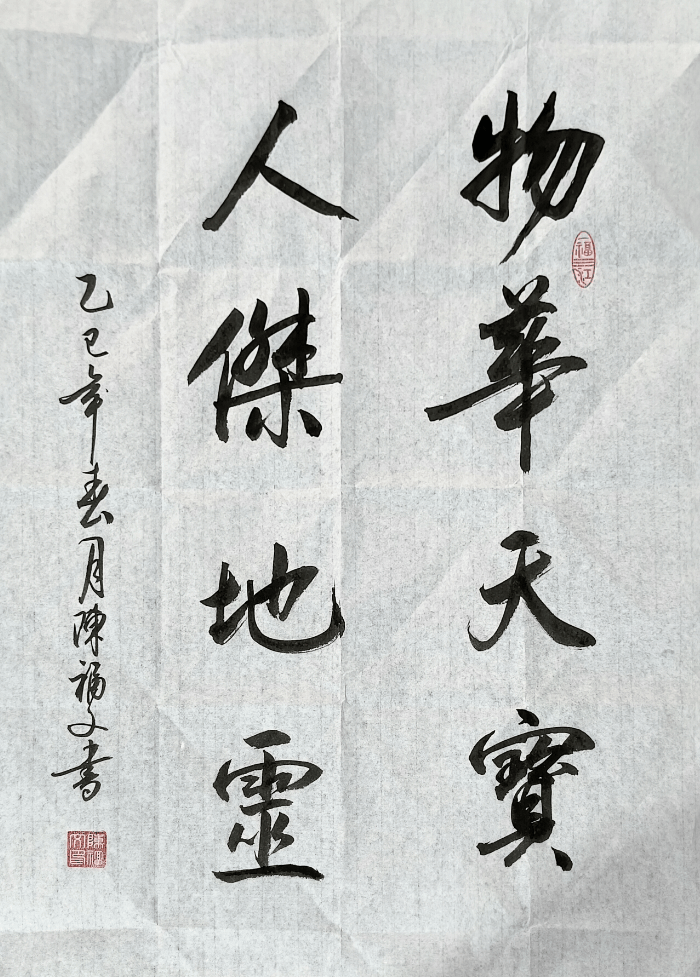 物華天寶
人傑地靈
乙巳年春月陳福文書